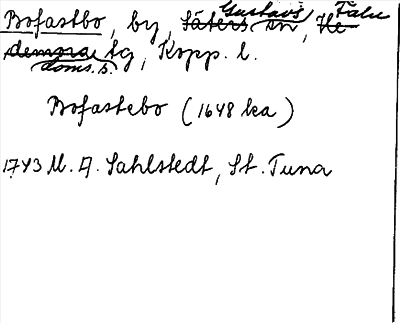 Bofastbo, by, Säters Gustavs sn, He- Falu
demora doms. s. tg, Kopp. l.
Bofastebo (1648 lea)
1743 M. A. Sahlstedt, St. Tuna